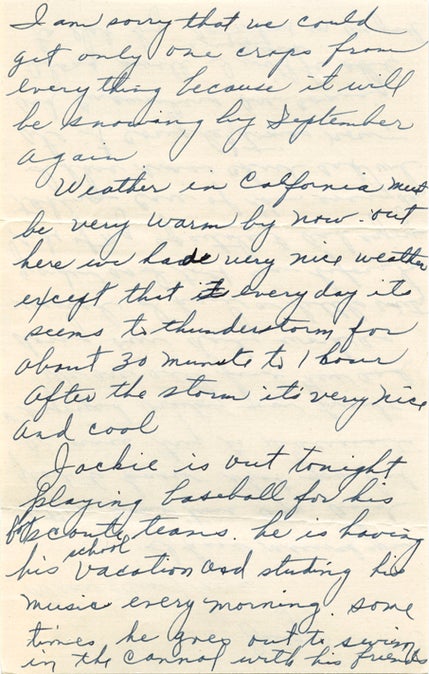 I am sorry that we could
get only one crops from
everything because it will
be snowing by September
again
Weather in Calfornia must
be very warm by now. out
here we hade very nice weather
except that it everyday its
seems to thunderstorm for
about 30 munite to 1 hour
after the storm its very nice
and cool
Jackie is out tonight
playing baseball for his
boy scouts teams. he is having
his school vacation and studing his
music every morning. some
times he goes out to swim
in the cannal with his friends